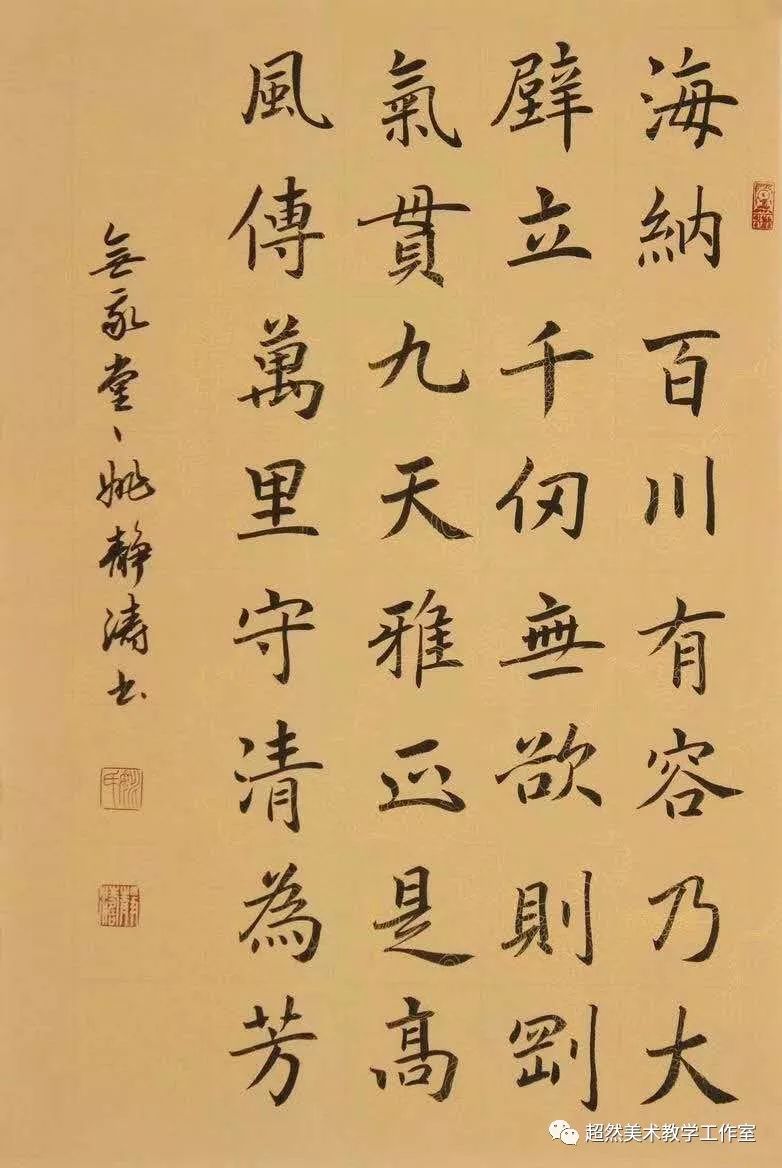 海納百川有容乃大
壁立千仞無欲則剛
氣貫九天雅正是高
風傳萬里守清為芳
無我堂、姚靜濤书
超然美术教学工作室